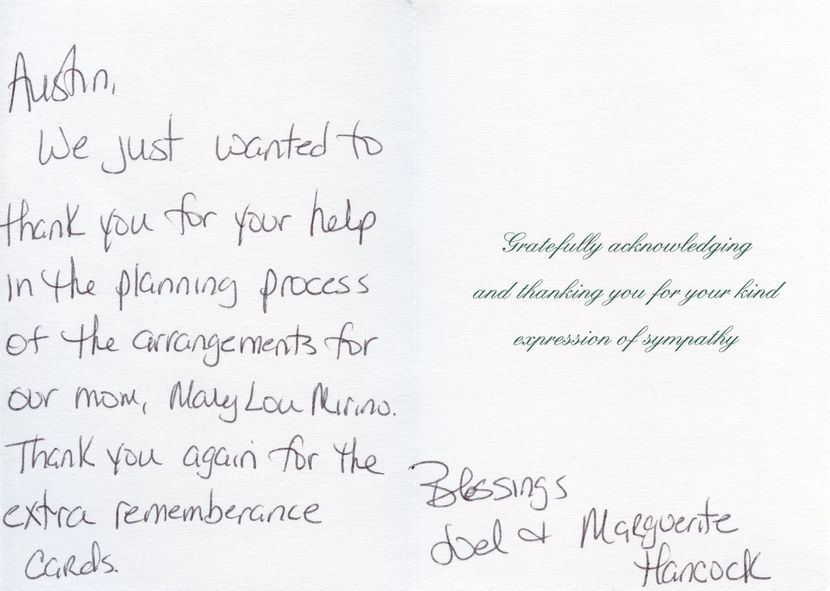 Austin,
We just wanted to
thank you for your help
in the planning process
of the arrangements for
our mom, Mary Lou Mirino.
Thank you again for the
extra rememberance
cards.
Gratefully acknowledging
and thanking you for your kind
expression of sympathy
Blessings
Joel & Marguerite
Hancock